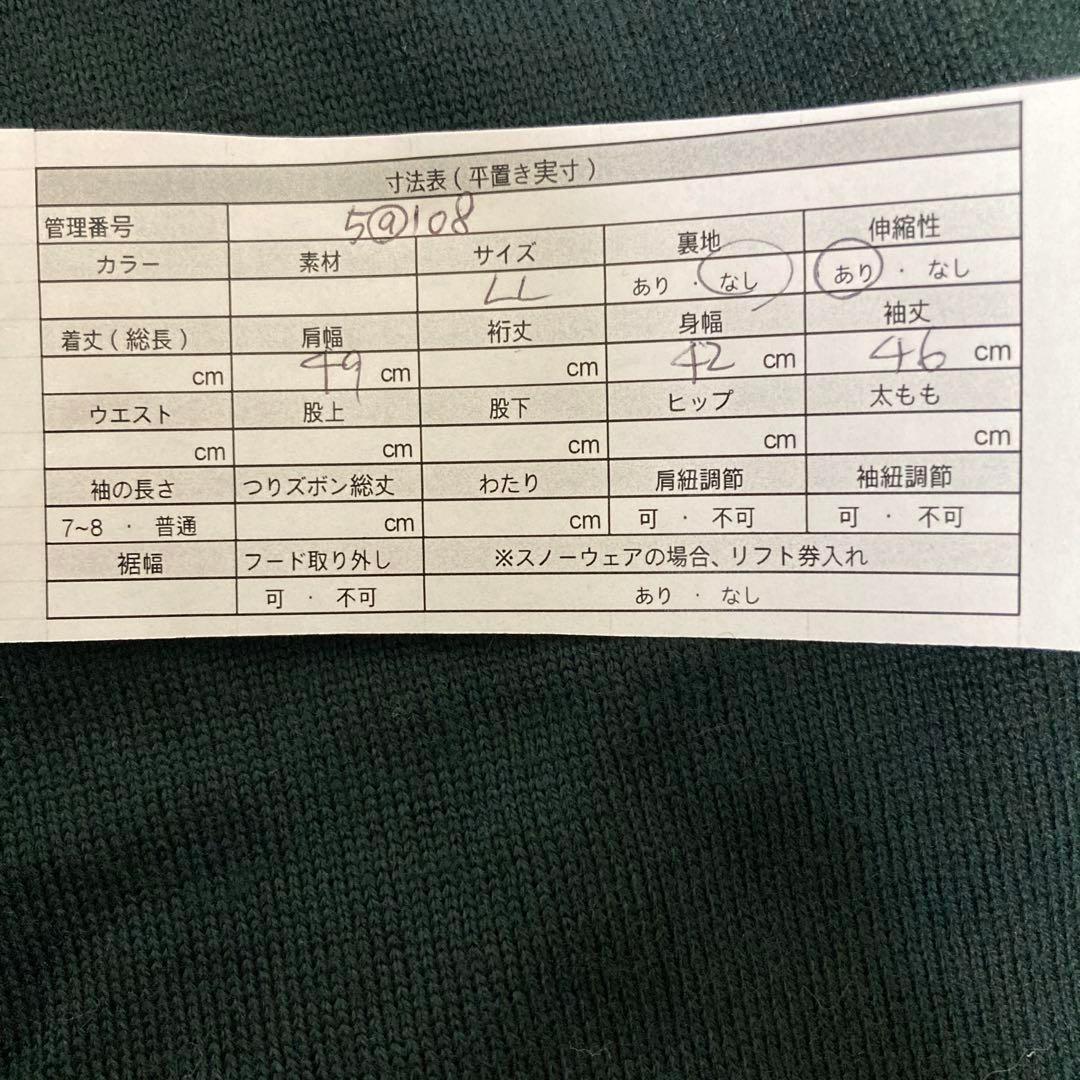 寸法表(平置き実寸)
管理番号 5@108
カラー 素材 サイズ 裏地 伸縮性
LL あり ・ なし あり ・ なし
着丈(総長) 肩幅 裄丈 身幅 袖丈
cm 49 cm cm 42 cm 46 cm
ウエスト 股上 股下 ヒップ 太もも
cm cm cm cm cm
袖の長さ つりズボン総丈 わたり 肩紐調節 袖紐調節
7~8 ・ 普通 cm cm 可 ・ 不可 可 ・ 不可
裾幅 フード取り外し ※スノーウェアの場合、リフト券入れ
可 ・ 不可 あり ・ なし